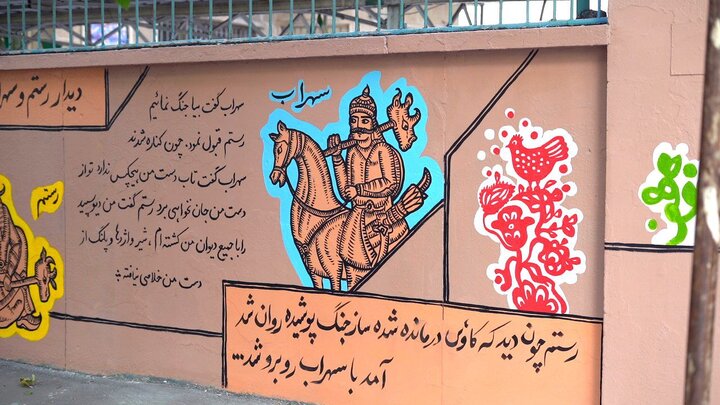 دیدار رستم و سهرا
سهراب گفت بیا جنگ نمائیم
رستم قبول نمود. چون کتاره شدند
سهراب گفت تاب دست من را هیچکس ندارد تو از
دست من جان نخواهی برد رستم گفت من دیو سپید
را با جمیع دیوان من کشته‌ام، شیر و اژدها و پلنگ از
دست من خلاصی نیافته
سهراب
رستم
رستم چون دید که کاوی درمانده شده ساز جنگ پوشیده روان شد
آمد با سهراب روبرو شد...